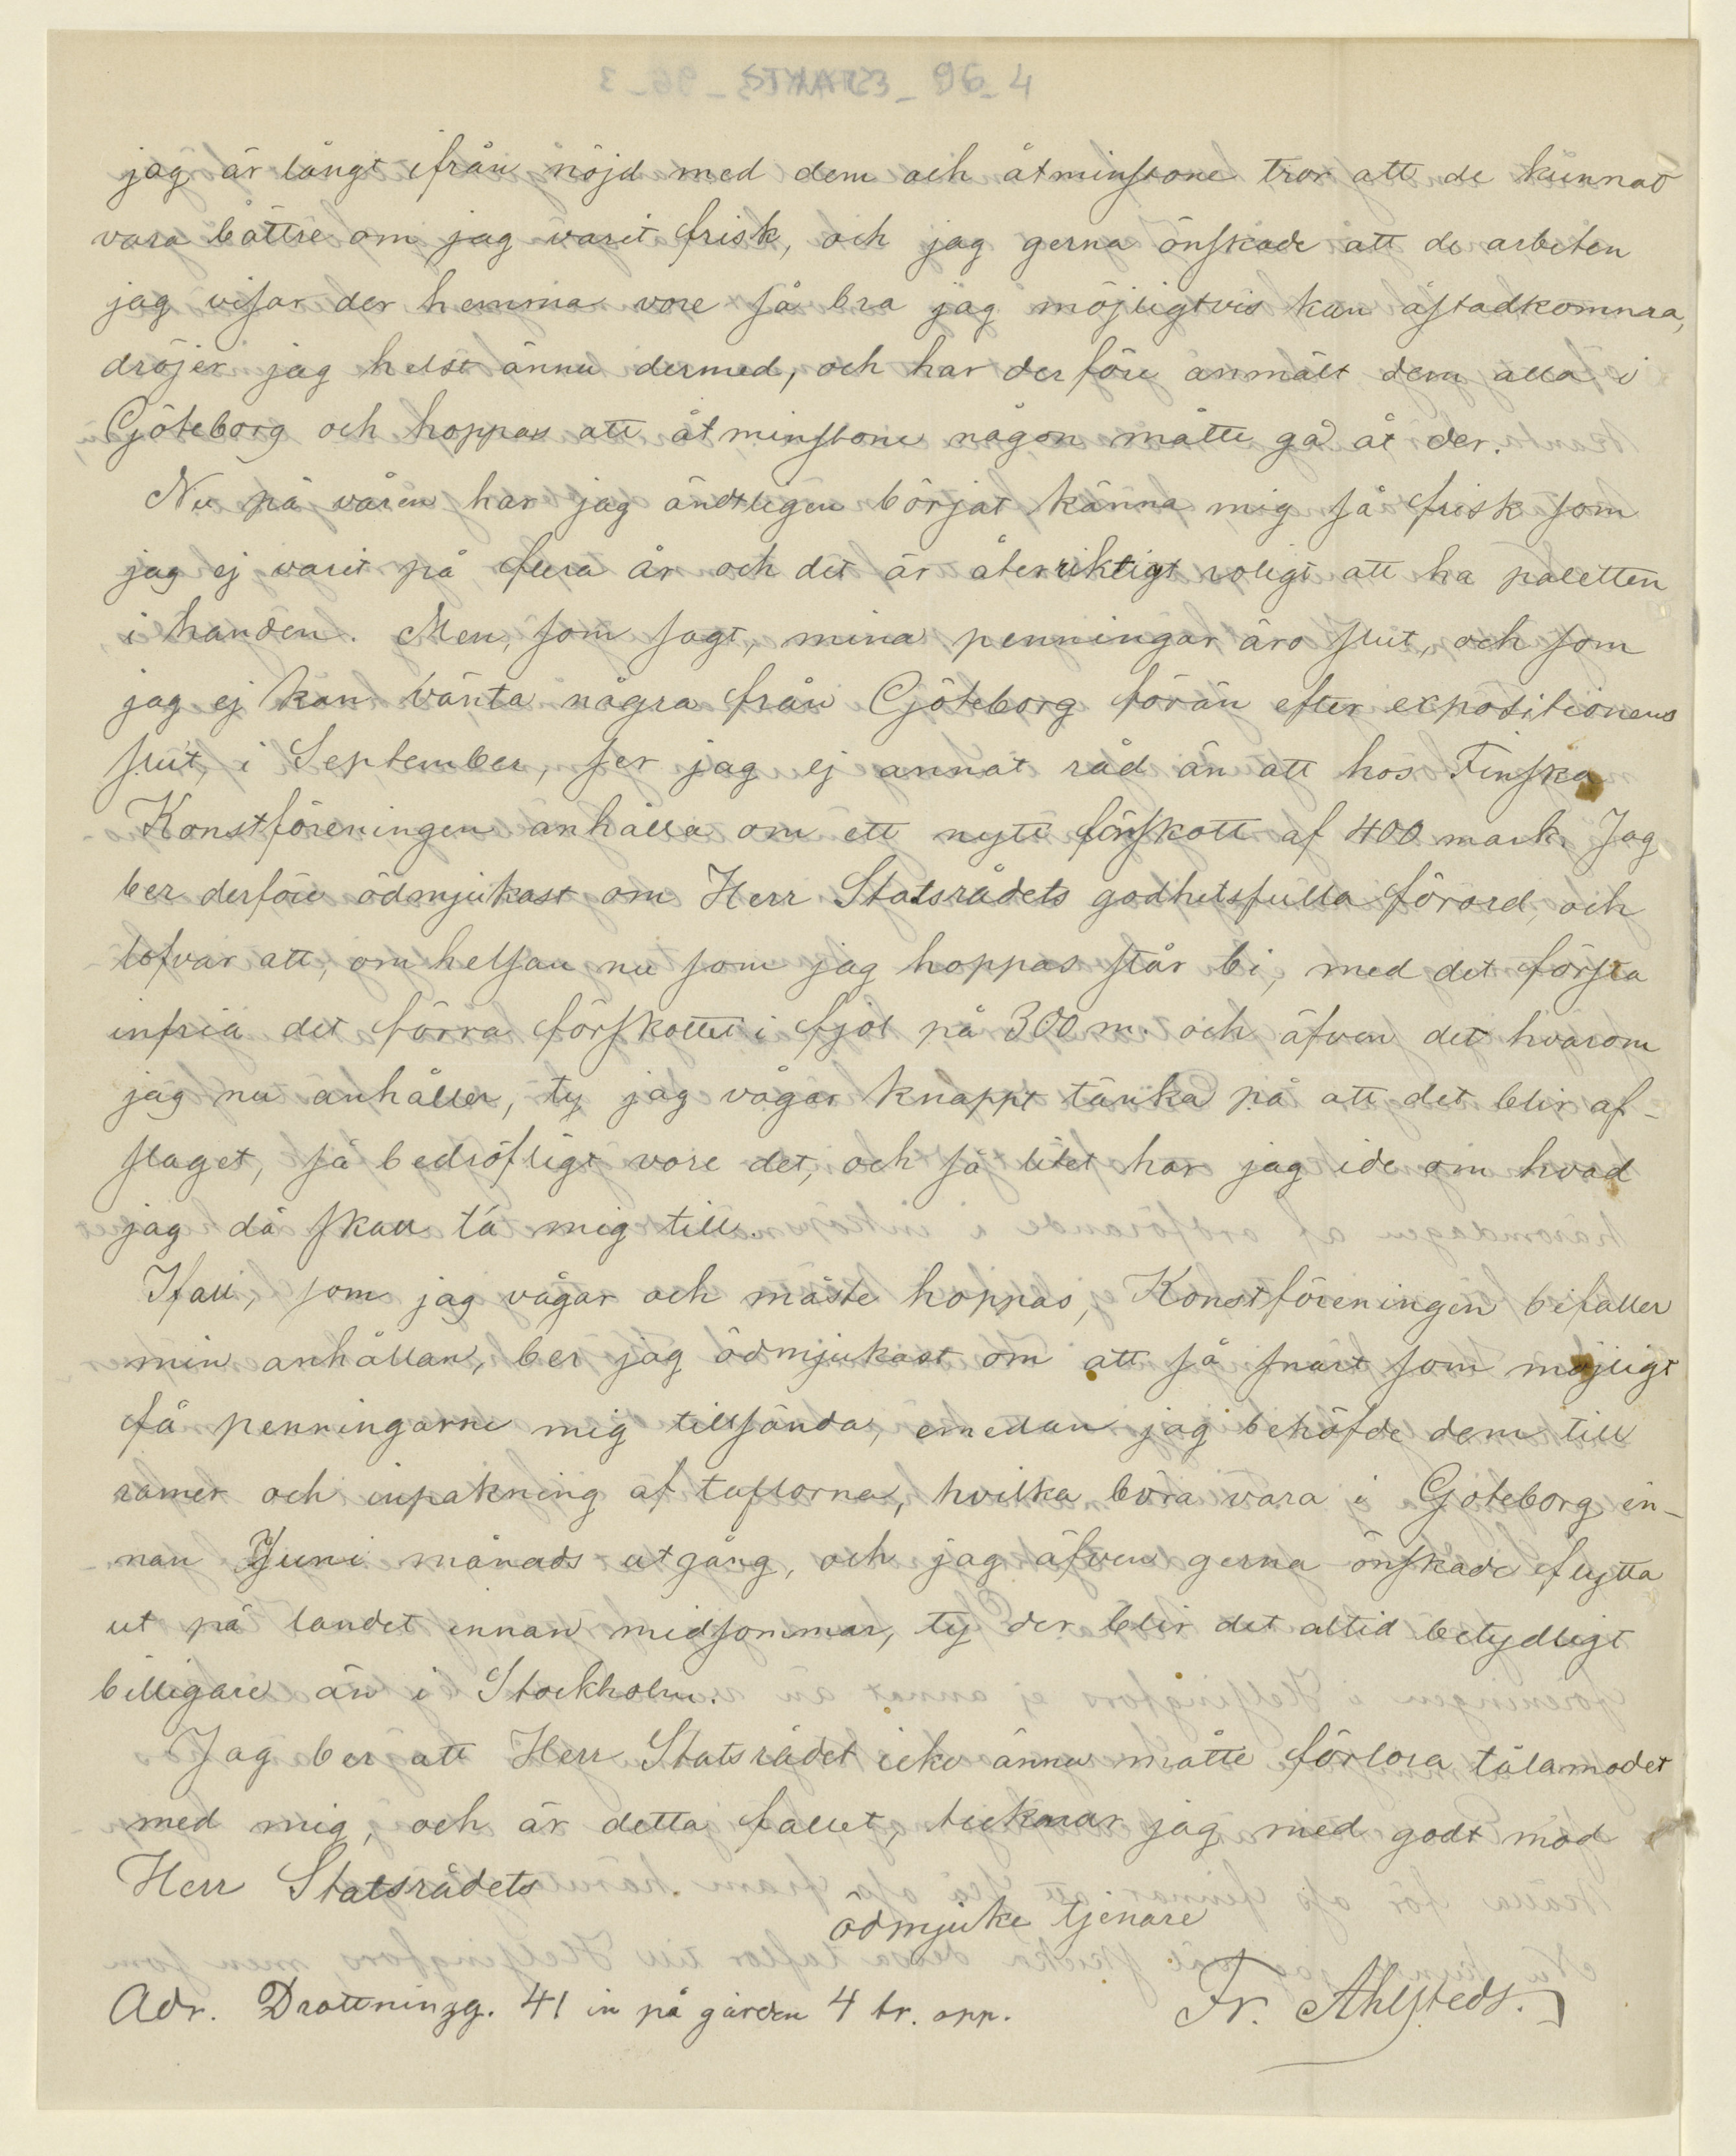 STYKAT23_96_4
jag är långt ifrån nöjd med dem och åtminstone tror att de kunnat
vara bättre om jag varit frisk, och jag gerna önskade att de arbeten
jag visar der hemma vore så bra jag möjligtvis kan åstadkomma,
dröjer jag helst ännu dermed, och har derföre anmält dem alla i
Göteborg och hoppas att åtminstone någon måtte gå åt der.
Nu på våren har jag ändtligen börjat känna mig så frisk som
jag ej varit på flera år och det är åter riktigt roligt att ha paletten
i handen. Men, som sagt, mina penningar äro slut, och som
jag ej kan vänta några från Göteborg förän efter expositionens
slut, i September, ser jag ej annat råd än att hos Finska
Konstföreningen anhålla om ett nytt förskott af 400 mark. Jag
ber derföre ödmjukast om Herr Statsrådets godhetsfulla förord, och
lofvar att, om helsan nu som jag hoppas står bi, med det första
infria det förra förskottet i fjol på 300 m. och äfven det hvarom
jag nu anhåller, ty jag vågar knappt tänka på att det blir af-
slaget, så bedröfligt vore det, och så litet har jag ide om hvad
jag då skall ta mig till.
Ifall, som jag vågar och måste hoppas, Konstföreningen bifaller
min anhållan, ber jag ödmjukast om att så snart som möjligt
få penningarne mig tillsända, emedan jag behöfde dem till
ramer och inpakning af taflorna, hvilka böra vara i Göteborg in-
nan Juni månads utgång, och jag äfven gerna önskade flytta
ut på landet innan midsommar, ty der blir det altid betydligt
billigare än i Stockholm.
Jag ber att Herr Statsrådet icke ännu måtte förlora tålamodet
med mig, och är detta fallet, tecknar jag med godt mod
Herr Statsrådets
ödmjuke tjenare
Fr. Ahlstedt.
Adr. Drottningg. 41 in på gården 4 tr. opp.